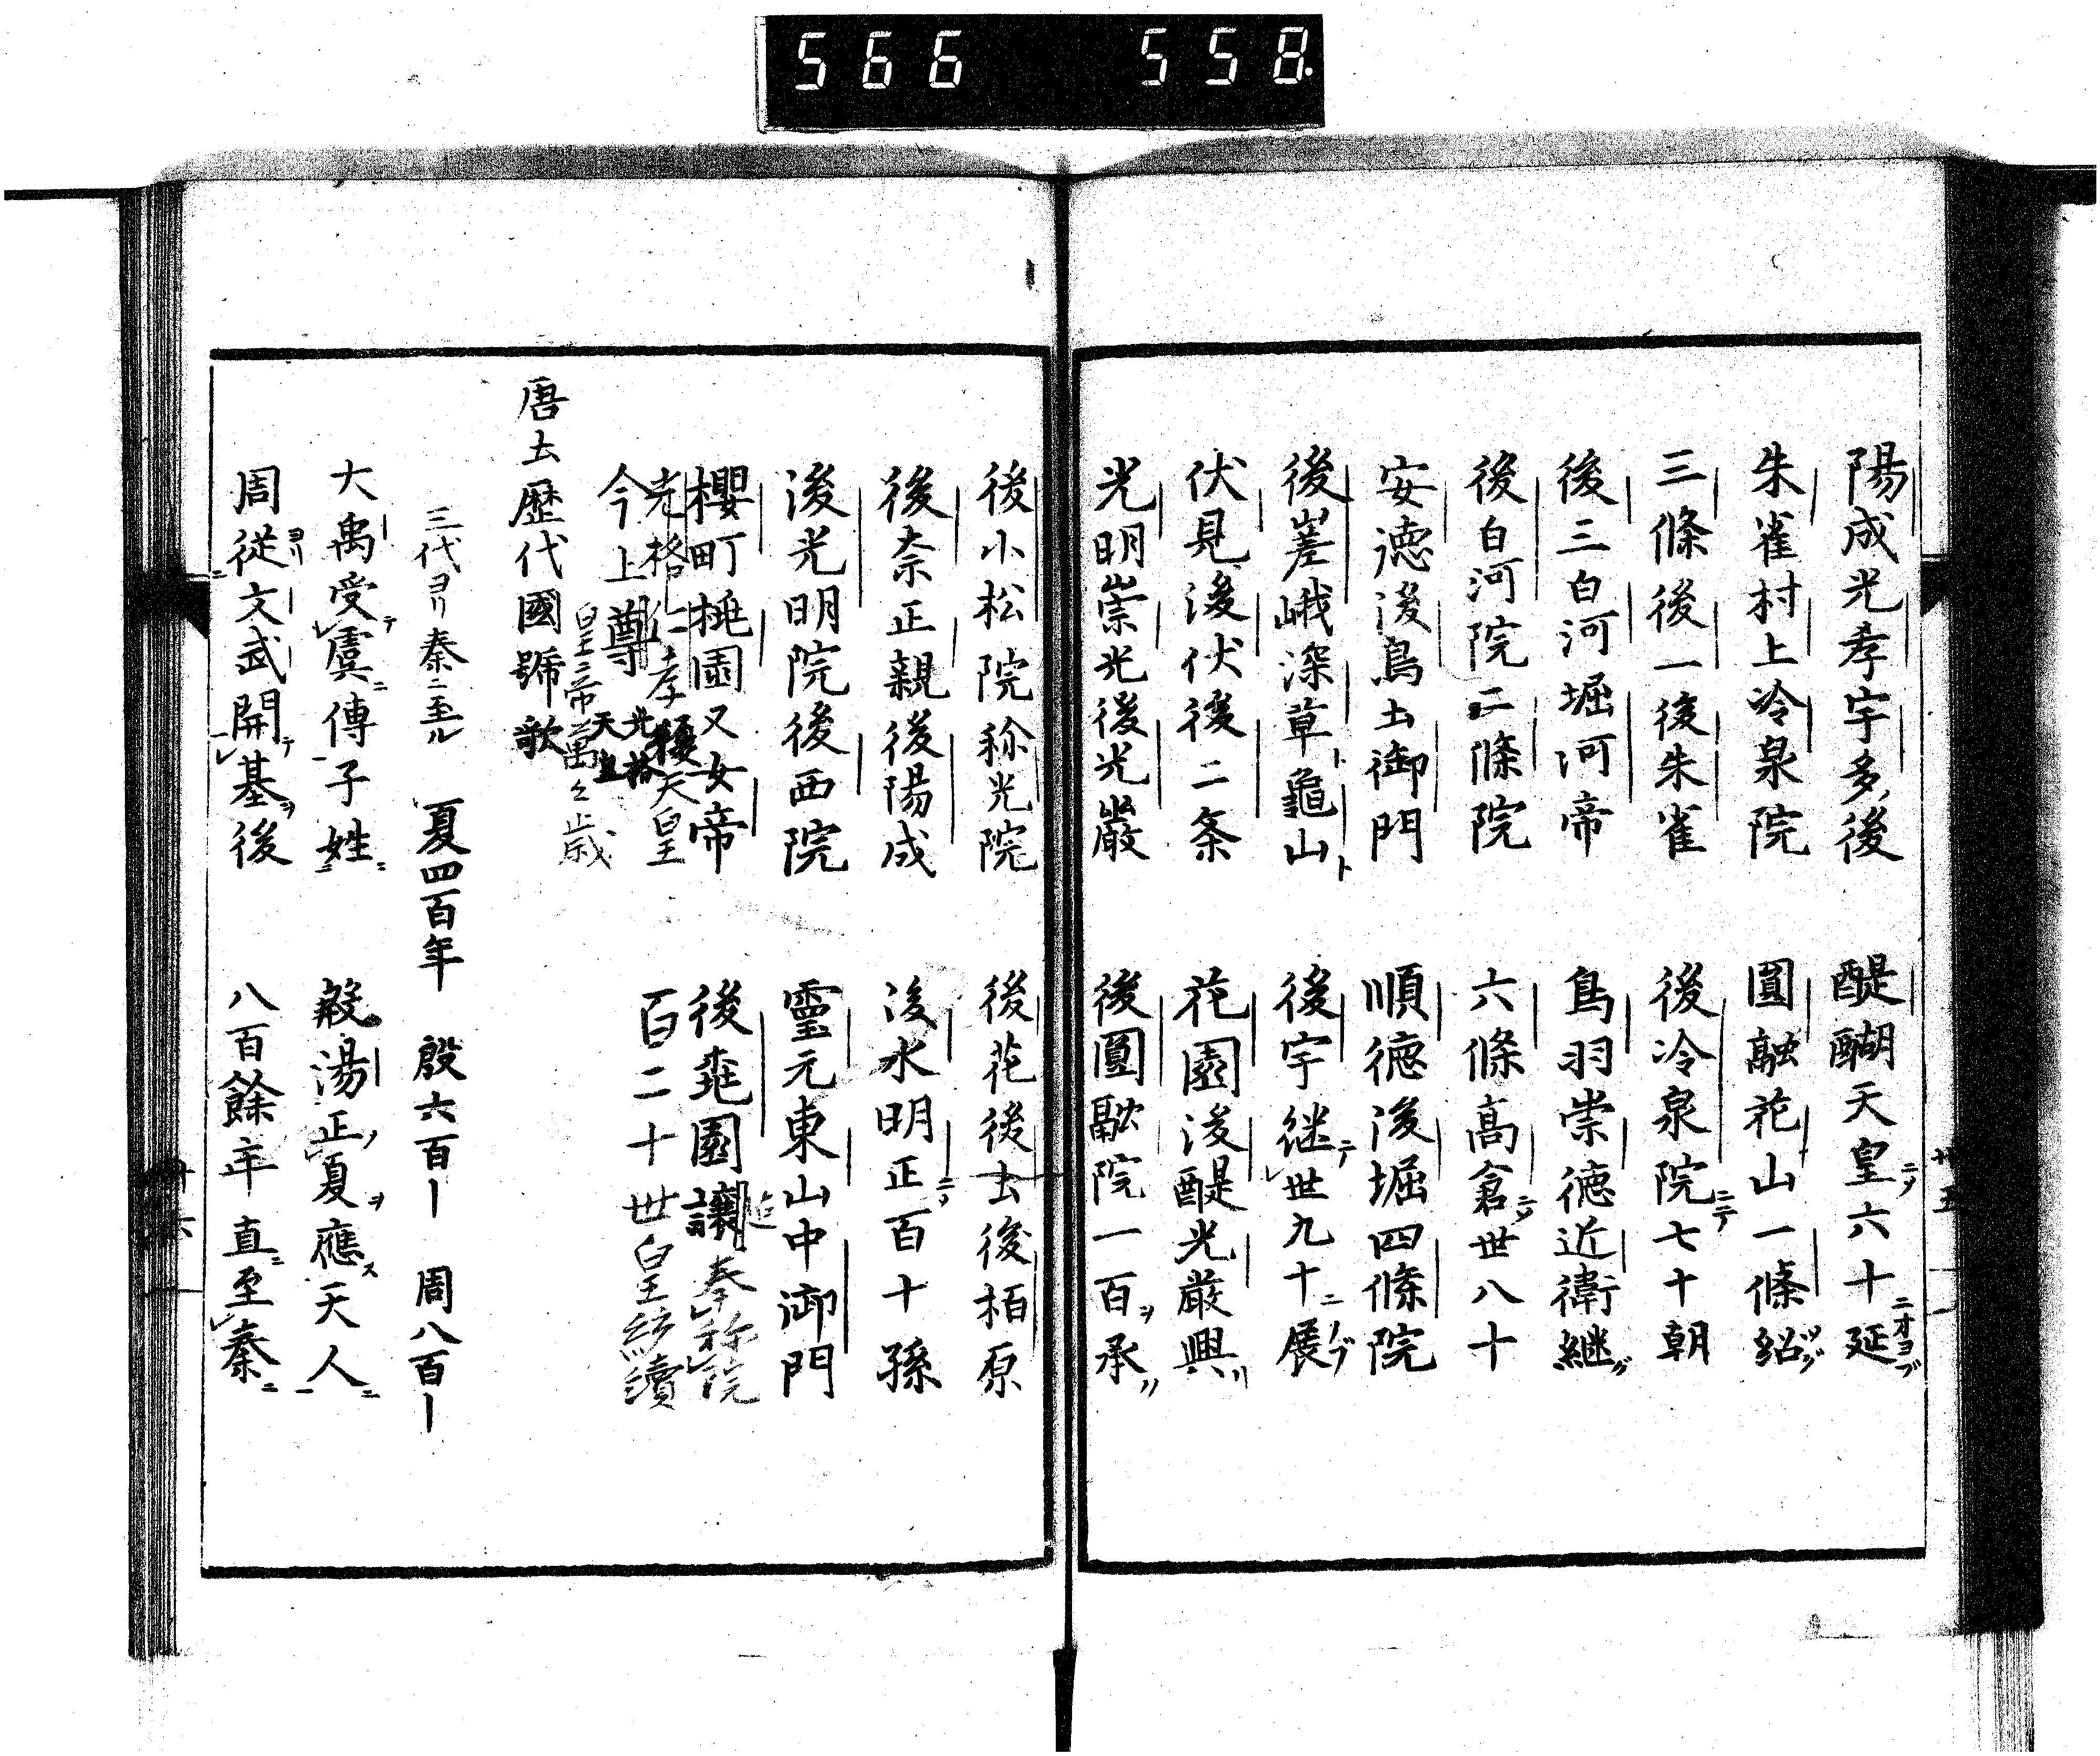 566 558
陽成光孝宇多後 醍醐天皇六十延
朱雀村上冷泉院 圓融花山一條紹
三條後一後朱雀 後冷泉院七十朝
後三白河堀河帝 鳥羽崇徳近衛継
後白河院二條院 六條高倉世八十
安徳後鳥土御門 順徳後堀四條院
後嵯峨深草龜山 後宇継世九十展
伏見後伏後二条 花園後醍光厳興
光明崇光後光嚴 後圓融院一百承
後小松院称光院 後花後土後柏原
後奈正親後陽成 後水明正百十孫
後光明院後西院 靈元東山中御門
櫻町桃園又女帝 後桃園讓 奉称院
光格仁孝 天皇 百二十世皇統續
今上尊
皇帝萬々歳
唐土歴代國號歌
三代ヨリ秦ニ至ル 夏四百年 殷六百ー 周八百ー
大禹受虞傳子姓 殷湯正夏應天人
周従文武開基後 八百餘年直至秦
廿五
廿六